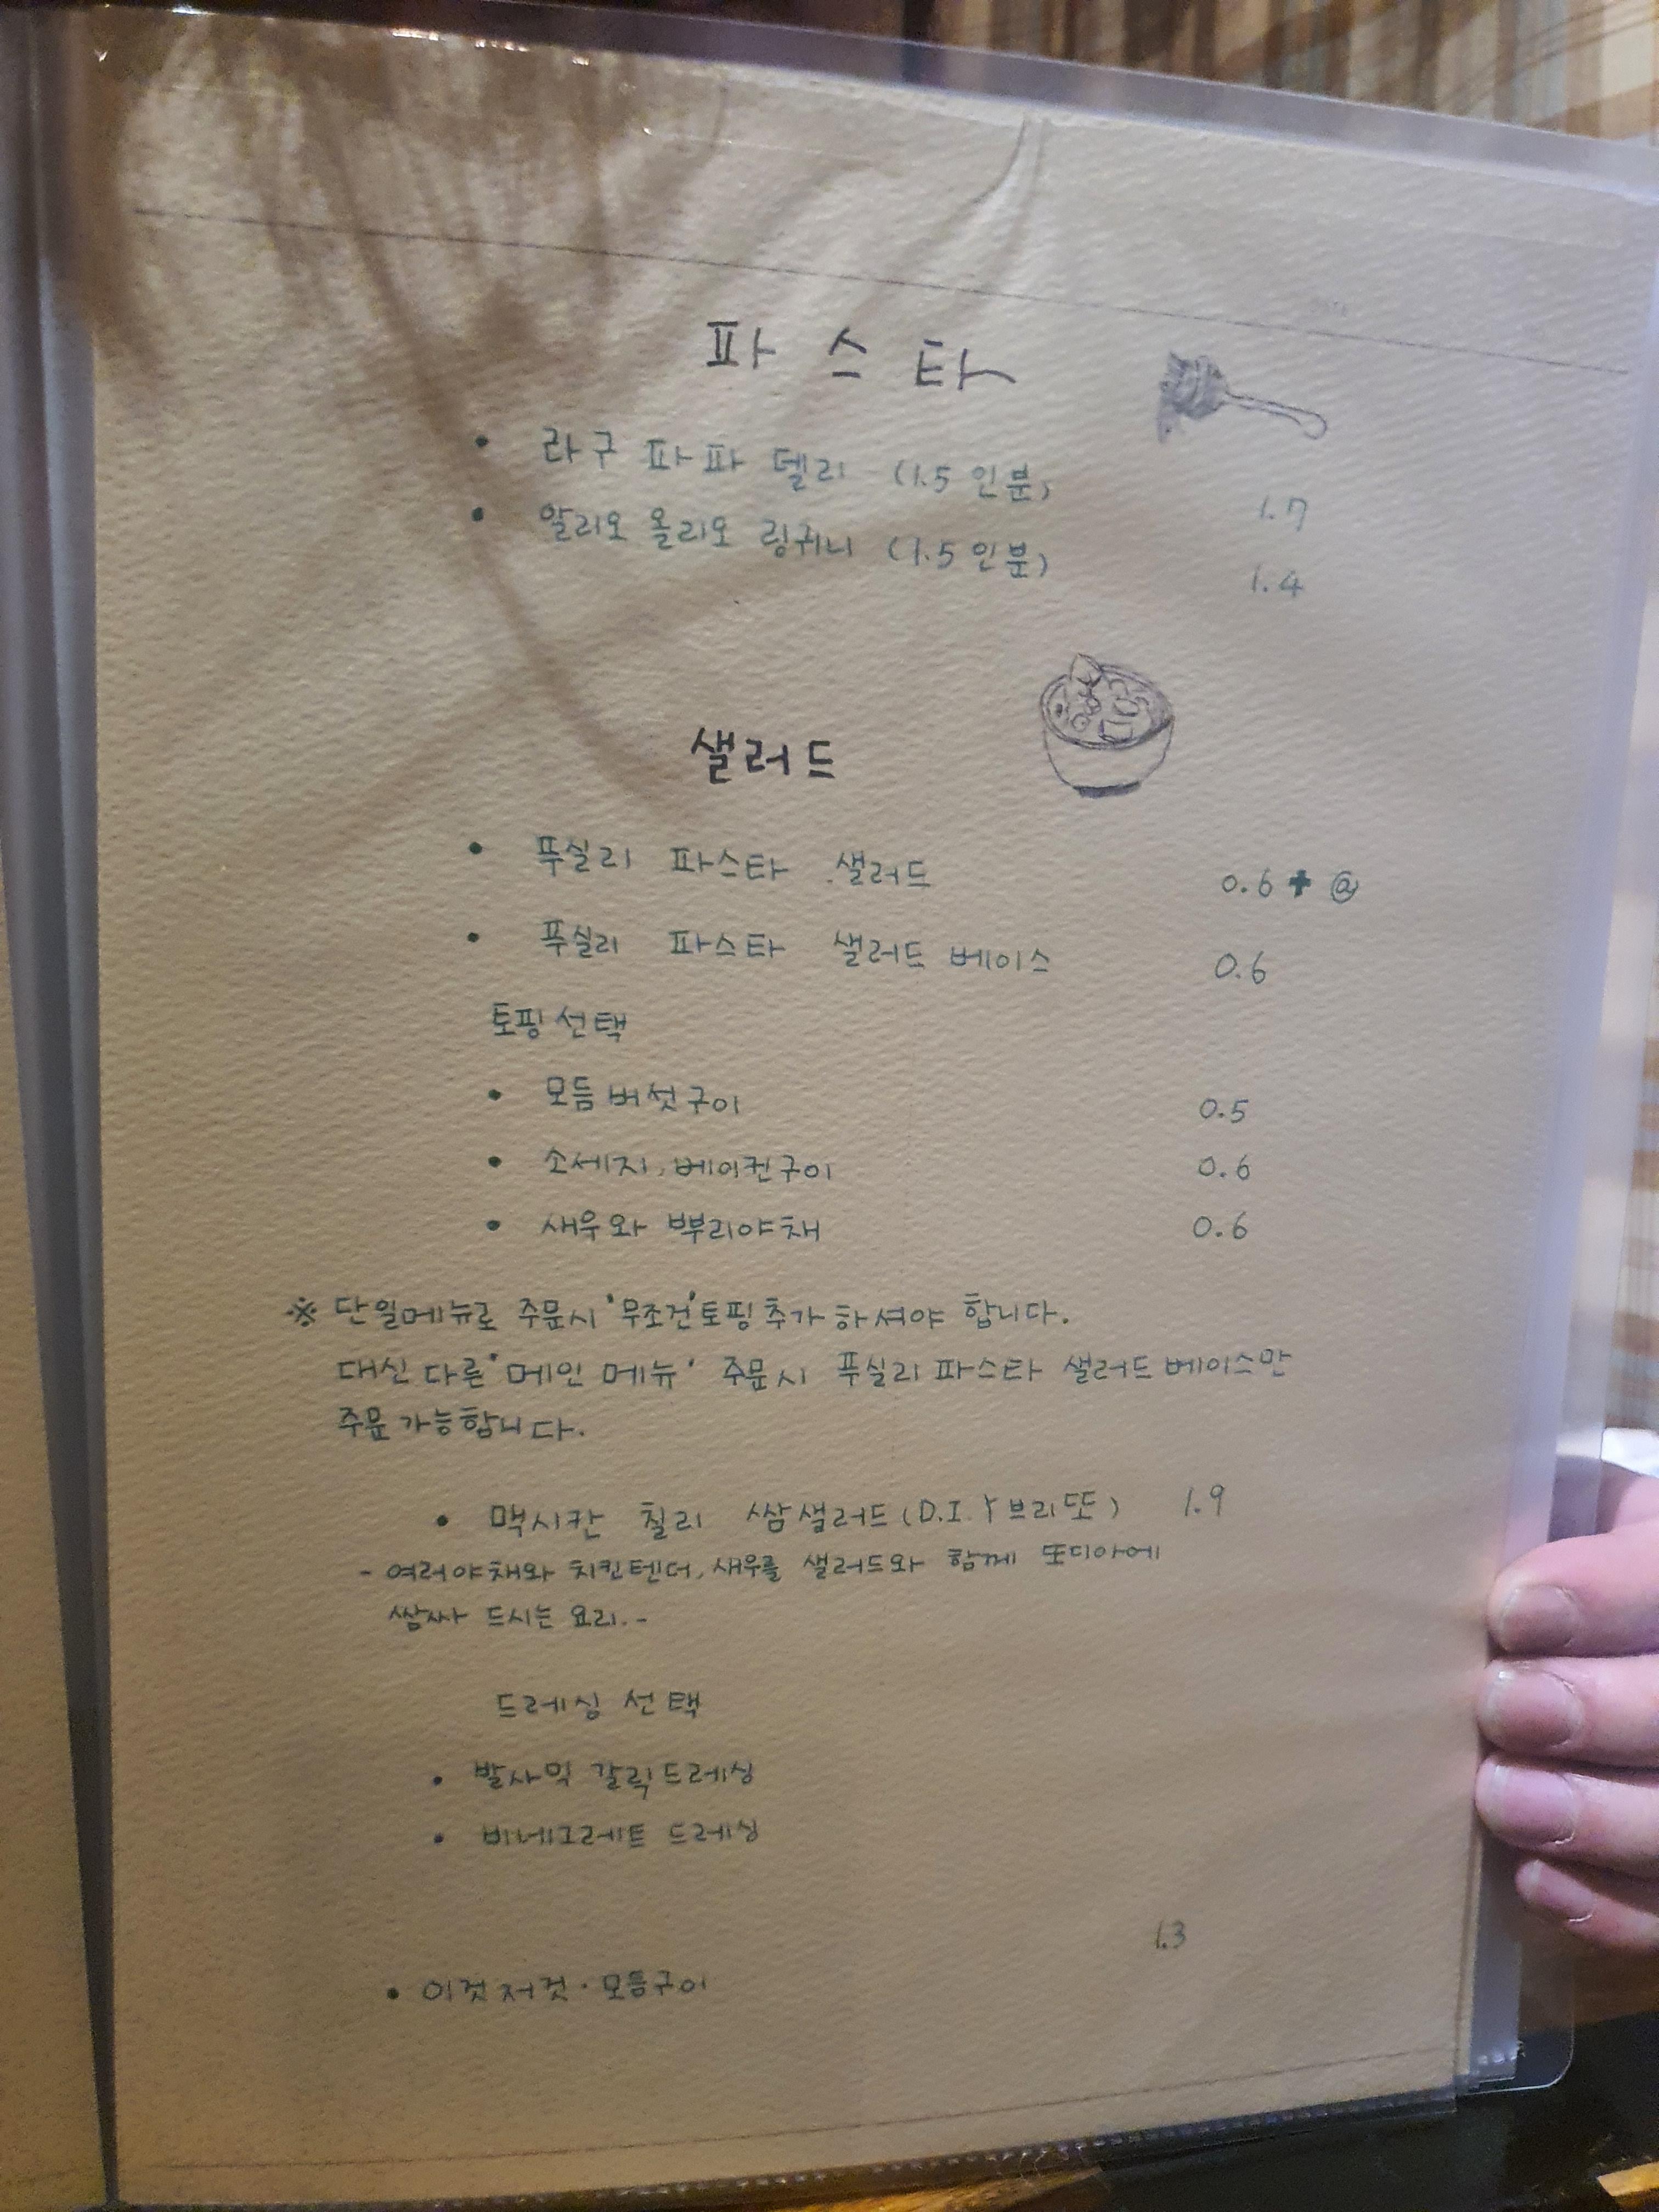 파스타
• 라구 파파델리 (1.5인분) 1.7
• 알리오 올리오 링귀니 (1.5인분) 1.4
샐러드
• 푸실리 파스타 샐러드 0.6 + @
• 푸실리 파스타 샐러드 베이스 0.6
토핑선택
• 모듬버섯구이 0.5
• 소세지, 베이컨구이 0.6
• 새우와 뿌리야채 0.6
※ 단일메뉴로 주문시 '무조건' 토핑추가 하셔야 합니다.
대신 다른 '메인 메뉴' 주문시 푸실리 파스타 샐러드 베이스만
주문 가능합니다.
• 맥시칸 칠리 쌈샐러드 (D.I.Y 브리또) 1.9
- 여러야채와 치킨텐더, 새우를 샐러드와 함께 또디아에
쌈싸 드시는 요리. -
드레싱 선택
• 발사믹 갈릭드레싱
• 비네그레트 드레싱
1.3
• 이것저것 · 모듬구이